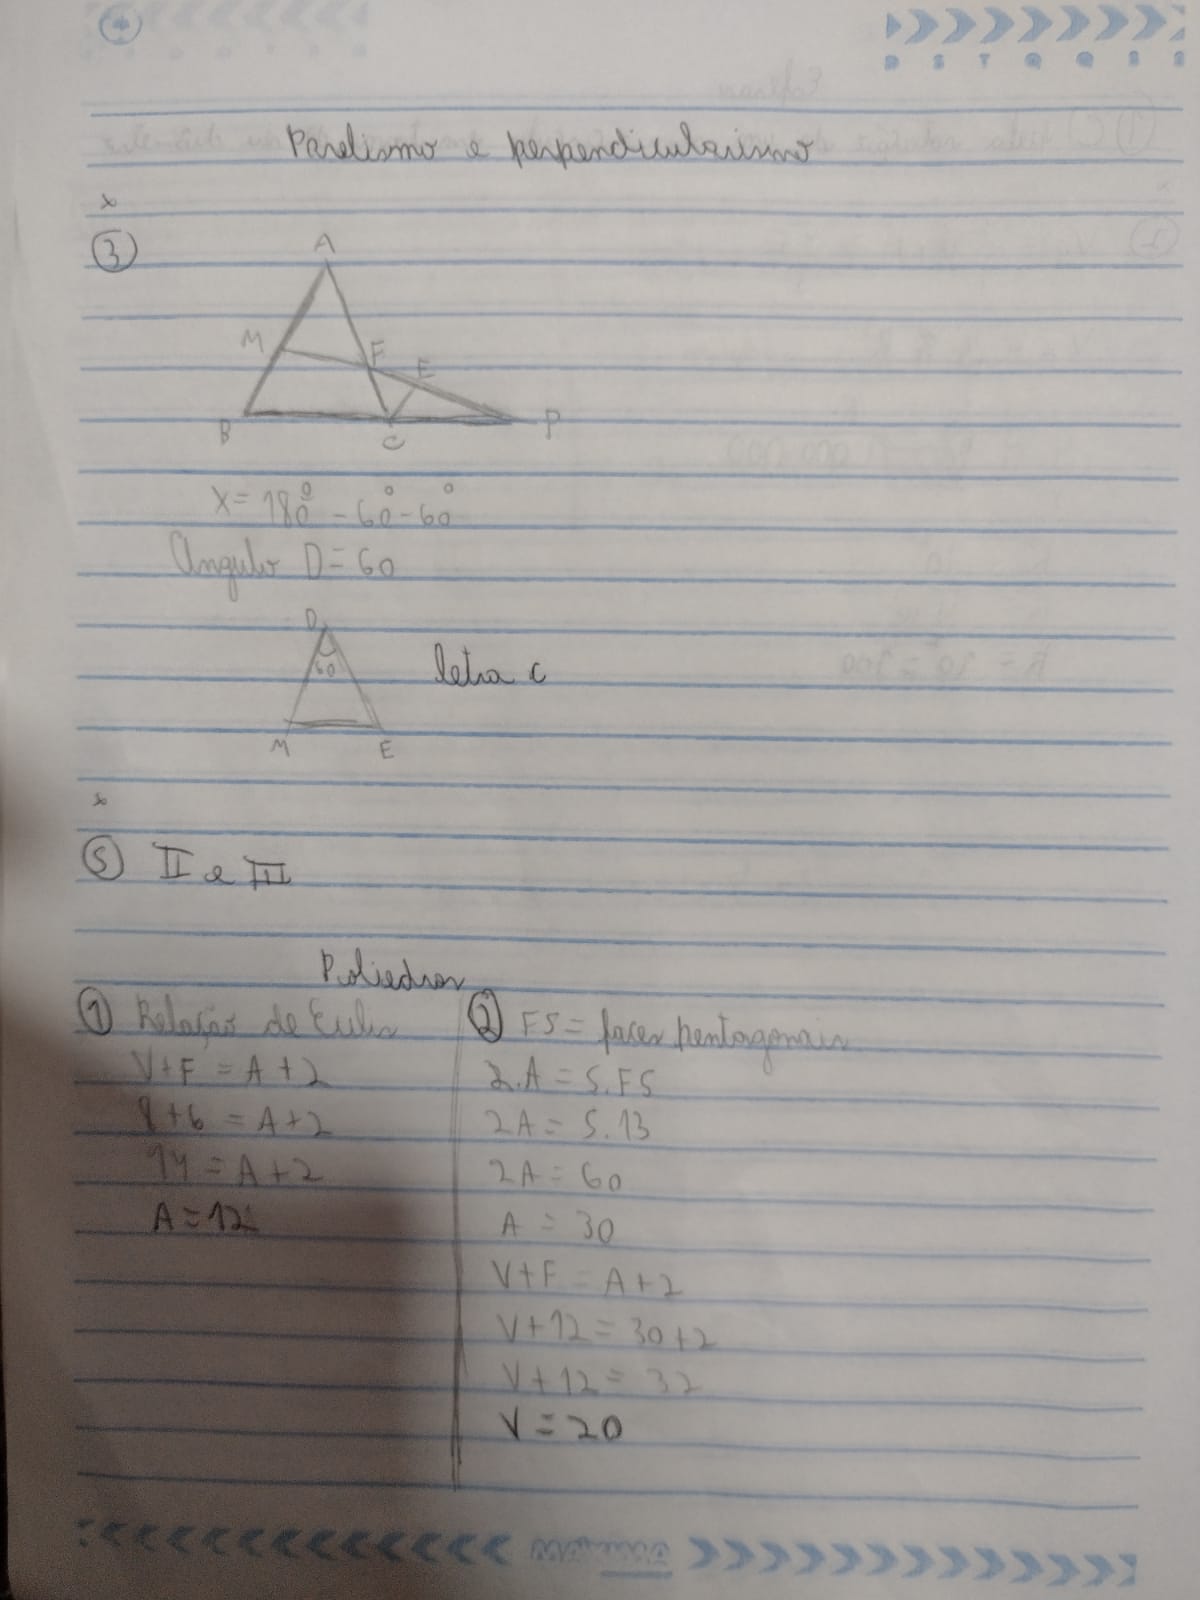 D S T Q Q S S
Paralismo e perpendicularismo
x
3
A
M F E
B C P
X = 180° - 60° - 60°
Angulo D = 60
D
60
letra c
M E
x
5 II e III
Poliedros
1 Relação de Euler
V+F = A+2
8+6 = A+2
14 = A+2
A = 12
2 F5 = faces pentagonais
2.A = 5.F5
2A = 5.13
2A = 60
A = 30
V+F = A+2
V+12 = 30+2
V+12 = 32
V = 20